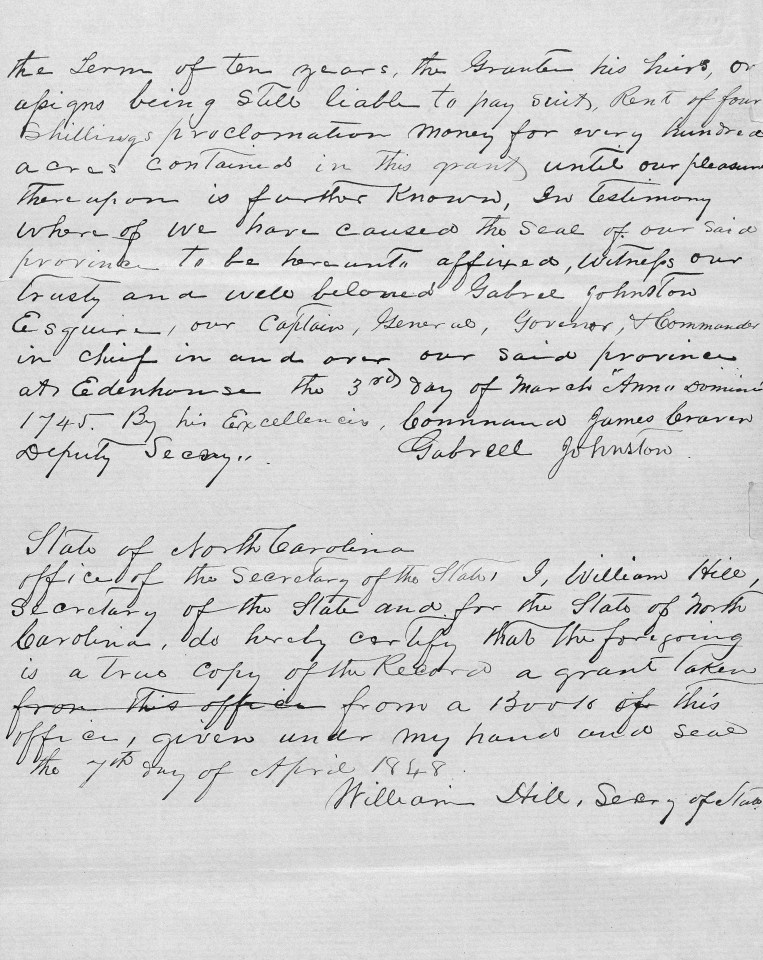 the Term of ten years, the Grante his heirs, or
assigns being Still liable to pay suit, Rent of four
Shillings proclamation money for every hundred
acres contained in this grant, until our pleasure
thereupon is further Known, In testimony
where of we have caused the seal of our said
province to be hereunto affixed, Witness our
trusty and well beloved Gabriel Johnston
Esquire, our Captain, General, Govenor, & Commander
in chief in and over our said province
at Edenhouse the 3rd day of March "Ann" Domini
1745. By his Excellencis, Command James Craven
Deputy Secry,. Gabriell Johnston.
State of North Carolina
office of the Secretary of the State, I, William Hill,
Secretary of the State and for the State of North
Carolina, do hereby certify that the foregoing
is a true copy of the Record a grant taken
from this office from a Book of this
office, given under my hand and seal
the 7th day of April 1848.
William Hill, Secry of State